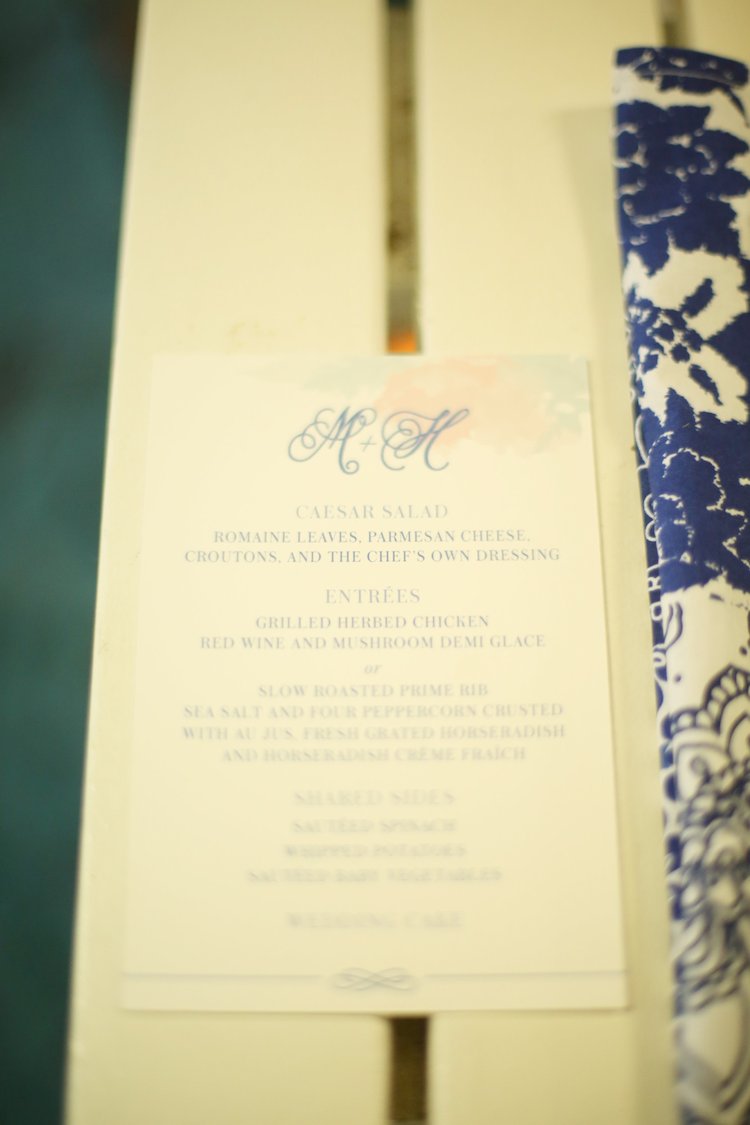 M + H
CAESAR SALAD
ROMAINE LEAVES, PARMESAN CHEESE,
CROUTONS, AND THE CHEF'S OWN DRESSING
ENTRÉES
GRILLED HERBED CHICKEN
RED WINE AND MUSHROOM DEMI GLACE
or
SLOW ROASTED PRIME RIB
SEA SALT AND FOUR PEPPERCORN CRUSTED
WITH AU JUS, FRESH GRATED HORSERADISH
AND HORSERADISH CRÈME FRAÎCH
SHARED SIDES
SAUTÉED SPINACH
WHIPPED POTATOES
SAUTÉED BABY VEGETABLES
WEDDING CAKE